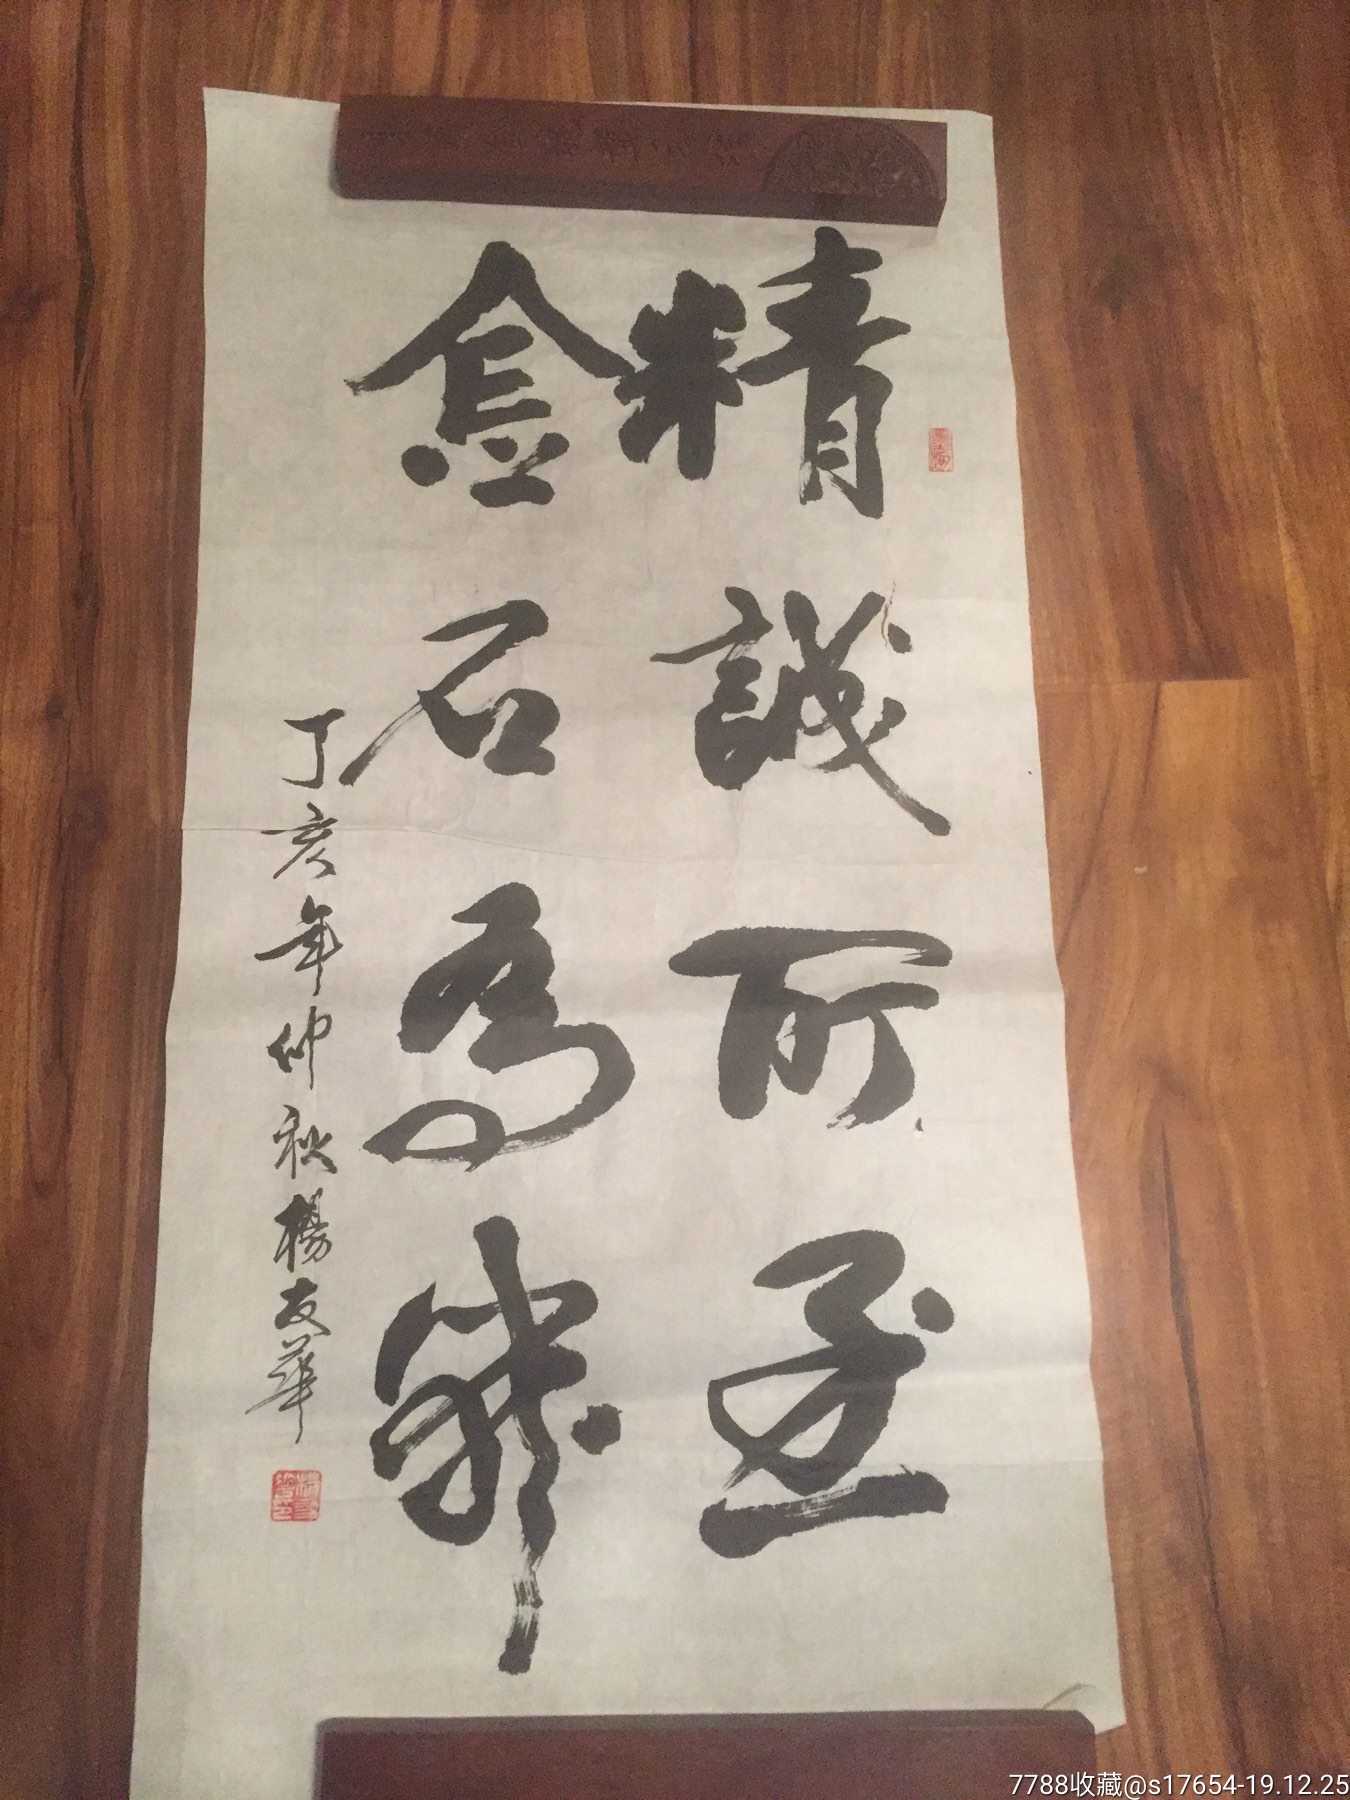 精誠所至
金石為開
丁亥年仲秋楊友華
7788收藏@s17654-19.12.25